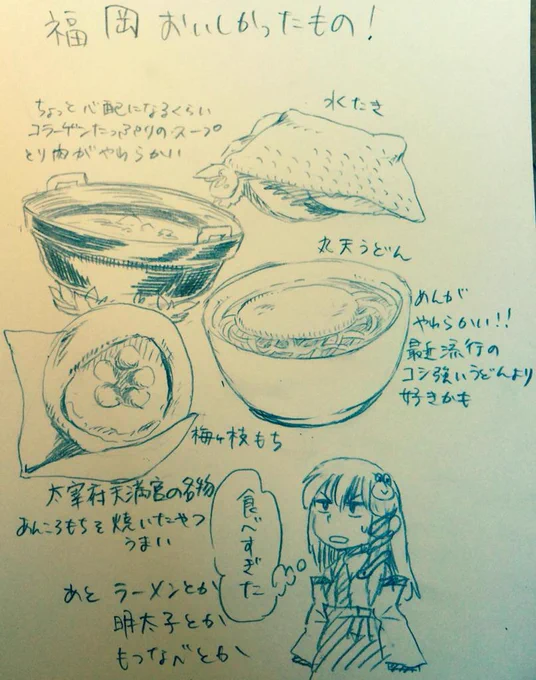 福岡 おいしかったもの!
水たき
ちょっと心配になるくらい
コラーゲンたっぷりのスープ
とり肉がやわらかい
丸天うどん
めんが
やわらかい!!
最近流行の
コシ強いうどんより
好きかも
梅ヶ枝もち
太宰府天満宮の名物
あんころもちを焼いたやつ
うまい
食べすぎた
あと ラーメンとか
明太子とか
もつなべとか